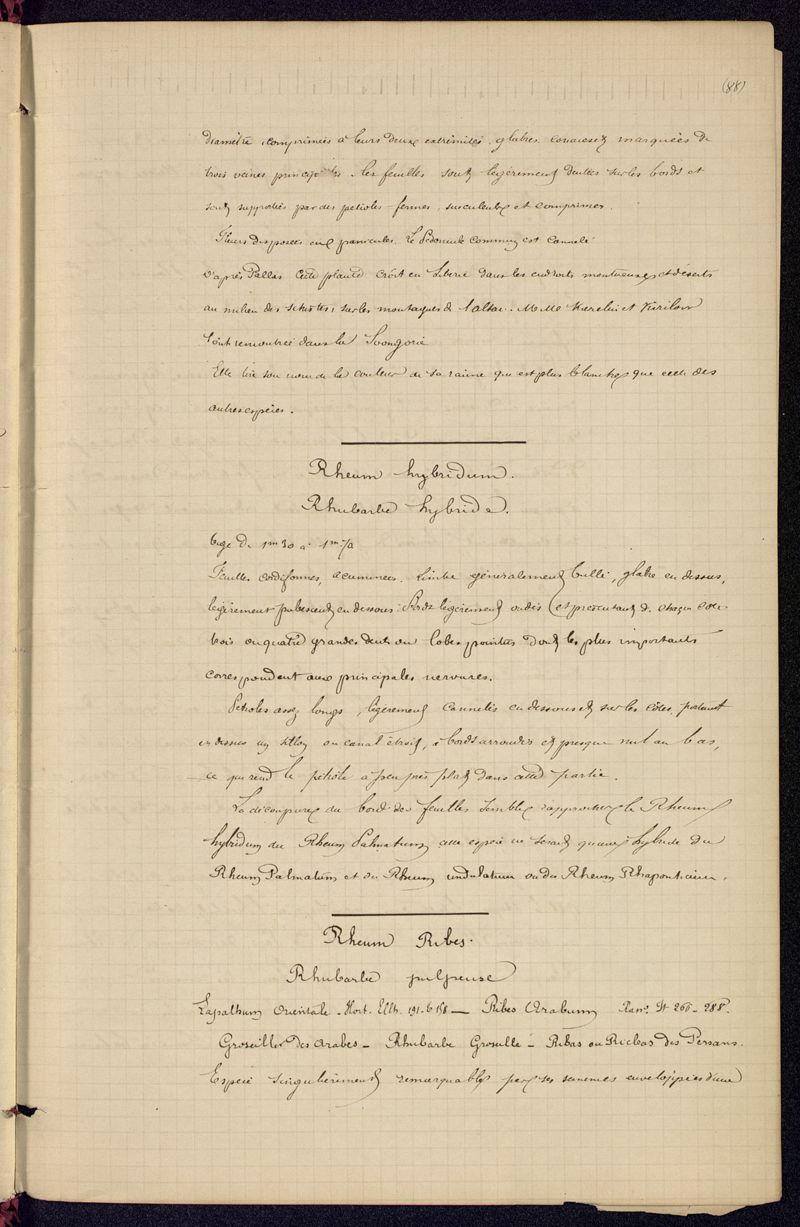 (88)
diamètre, comprimées à leurs deux extrémités, glabres, coriaces et marquées de
trois veines principales. les feuilles sont légèrement dentées sur les bords et
sont supportées par des pétioles fermes, succulents et comprimés.
Fleurs disposées en panicules. Le Pédoncule commun est cannelé
D'après Pallas cette plante croît en Sibérie dans les endroits montueux et déserts
au milieu des schistes, sur les montagnes de l'altai. MMrs Karelin et Kirilow
l'ont rencontrée dans la Soongorie
Elle tire son nom de la couleur de sa racine qui est plus blanche que celle des
autres espèces.
Rheum hybridum.
Rhubarbe hybride.
tige de 1m30 à 1m70
Feuilles cordiformes, acuminées. limbe généralement bullé, glabre en dessus,
légèrement pubescent en dessous. Bords légèrement ondés et présentant de chaque côté
trois ou quatre grandes dents ou lobes pointus dont les plus importants
correspondent aux principales nervures.
Pétioles assez longs, légèrement cannelés en dessous et sur les côtés, portant
en dessus un sillon ou canal étroit, à bords arrondis et presque nul au bas,
ce qui rend le pétiole à peu près plat dans cette partie.
La découpure du bord des feuilles semble rapprocher le Rheum
hybridum du Rheum Palmatum, cette espèce ne serait qu'une hybride du
Rheum Palmatum et du Rheum undulatum ou du Rheum Rhaponticum.
Rheum Ribes.
Rhubarbe pulpeuse
Lapathum Orientale - Hort. Elth. 191. t. 158 — Ribes Arabum It 266 - 288.
Groseiller des Arabes - Rhubarbe Groseille - Ribas ou Riebas des Persans.
Espèce singulièrement remarquable par ses semences enveloppées d'une